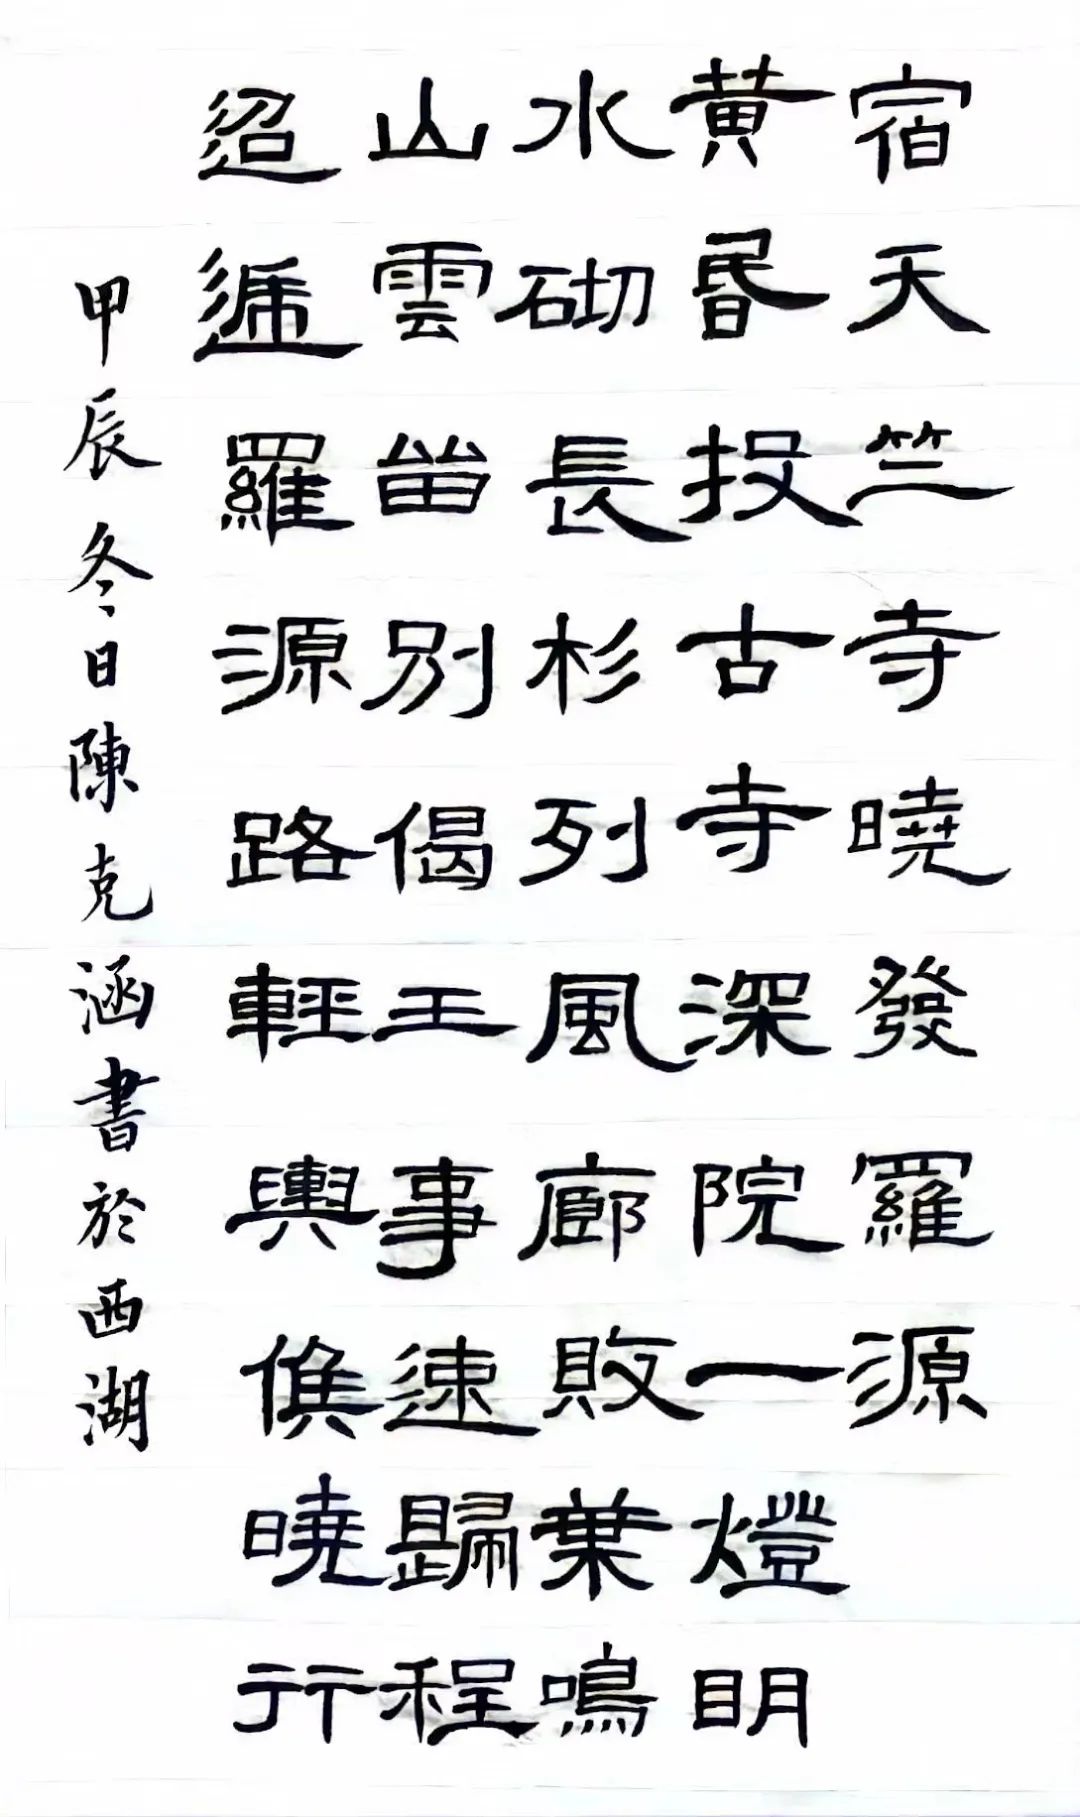 宿天竺寺曉發羅源
黄昬投古寺深院一燈眀
水砌長杉列風廊敗葉鳴
山雲留別偈王事速歸程
迢遞羅源路輕輿候曉行
甲辰冬日陳克涵書於西湖